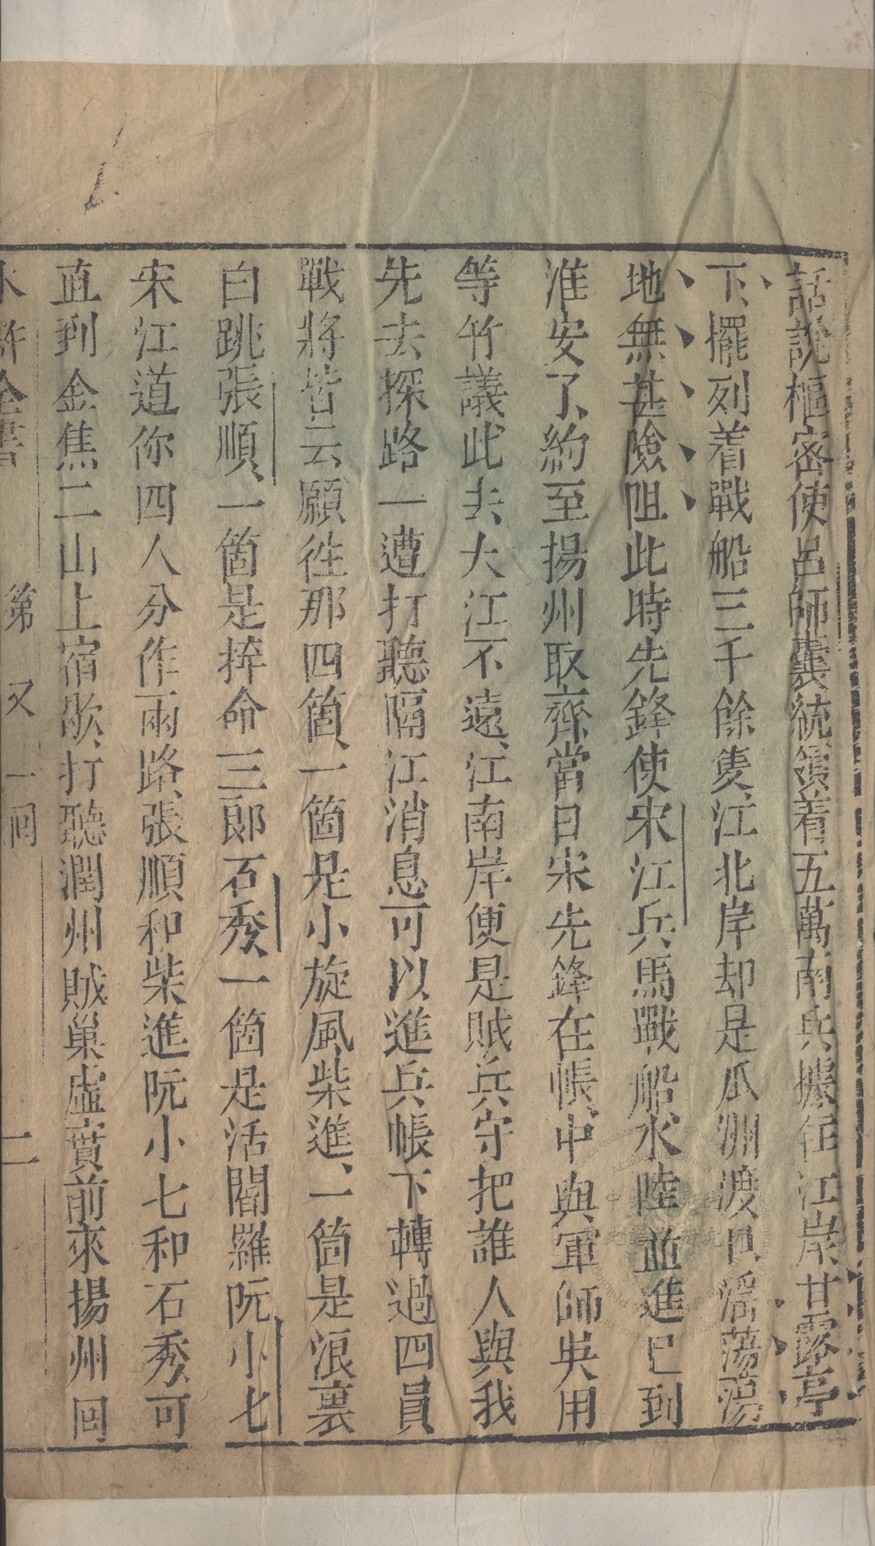 話說樞密使呂師囊統領着五萬南兵據住江岸甘露亭
下、擺列着戰船三千餘隻、江北岸却是瓜洲渡口滔蕩蕩
地無甚險阻此時先鋒使宋江兵馬戰船水陸並進已到
淮安了、約至揚州取齊當日宋先鋒在帳中與軍師吳用
等計議此去大江不遠江南岸便是賊兵守把誰人與我
先去探路一遭打聽隔江消息可以進兵帳下轉過四員
戰將皆云願徃那四箇、一箇是小旋風柴進、一箇是浪裏
白跳張順、一箇是拚命三郎石秀、一箇是活閻羅阮小七
宋江道你四人分作兩路張順和柴進阮小七和石秀可
直到金焦二山上宿歇、打聽潤州賊巢虛實前來揚州回
水滸全書 第 又一回 二